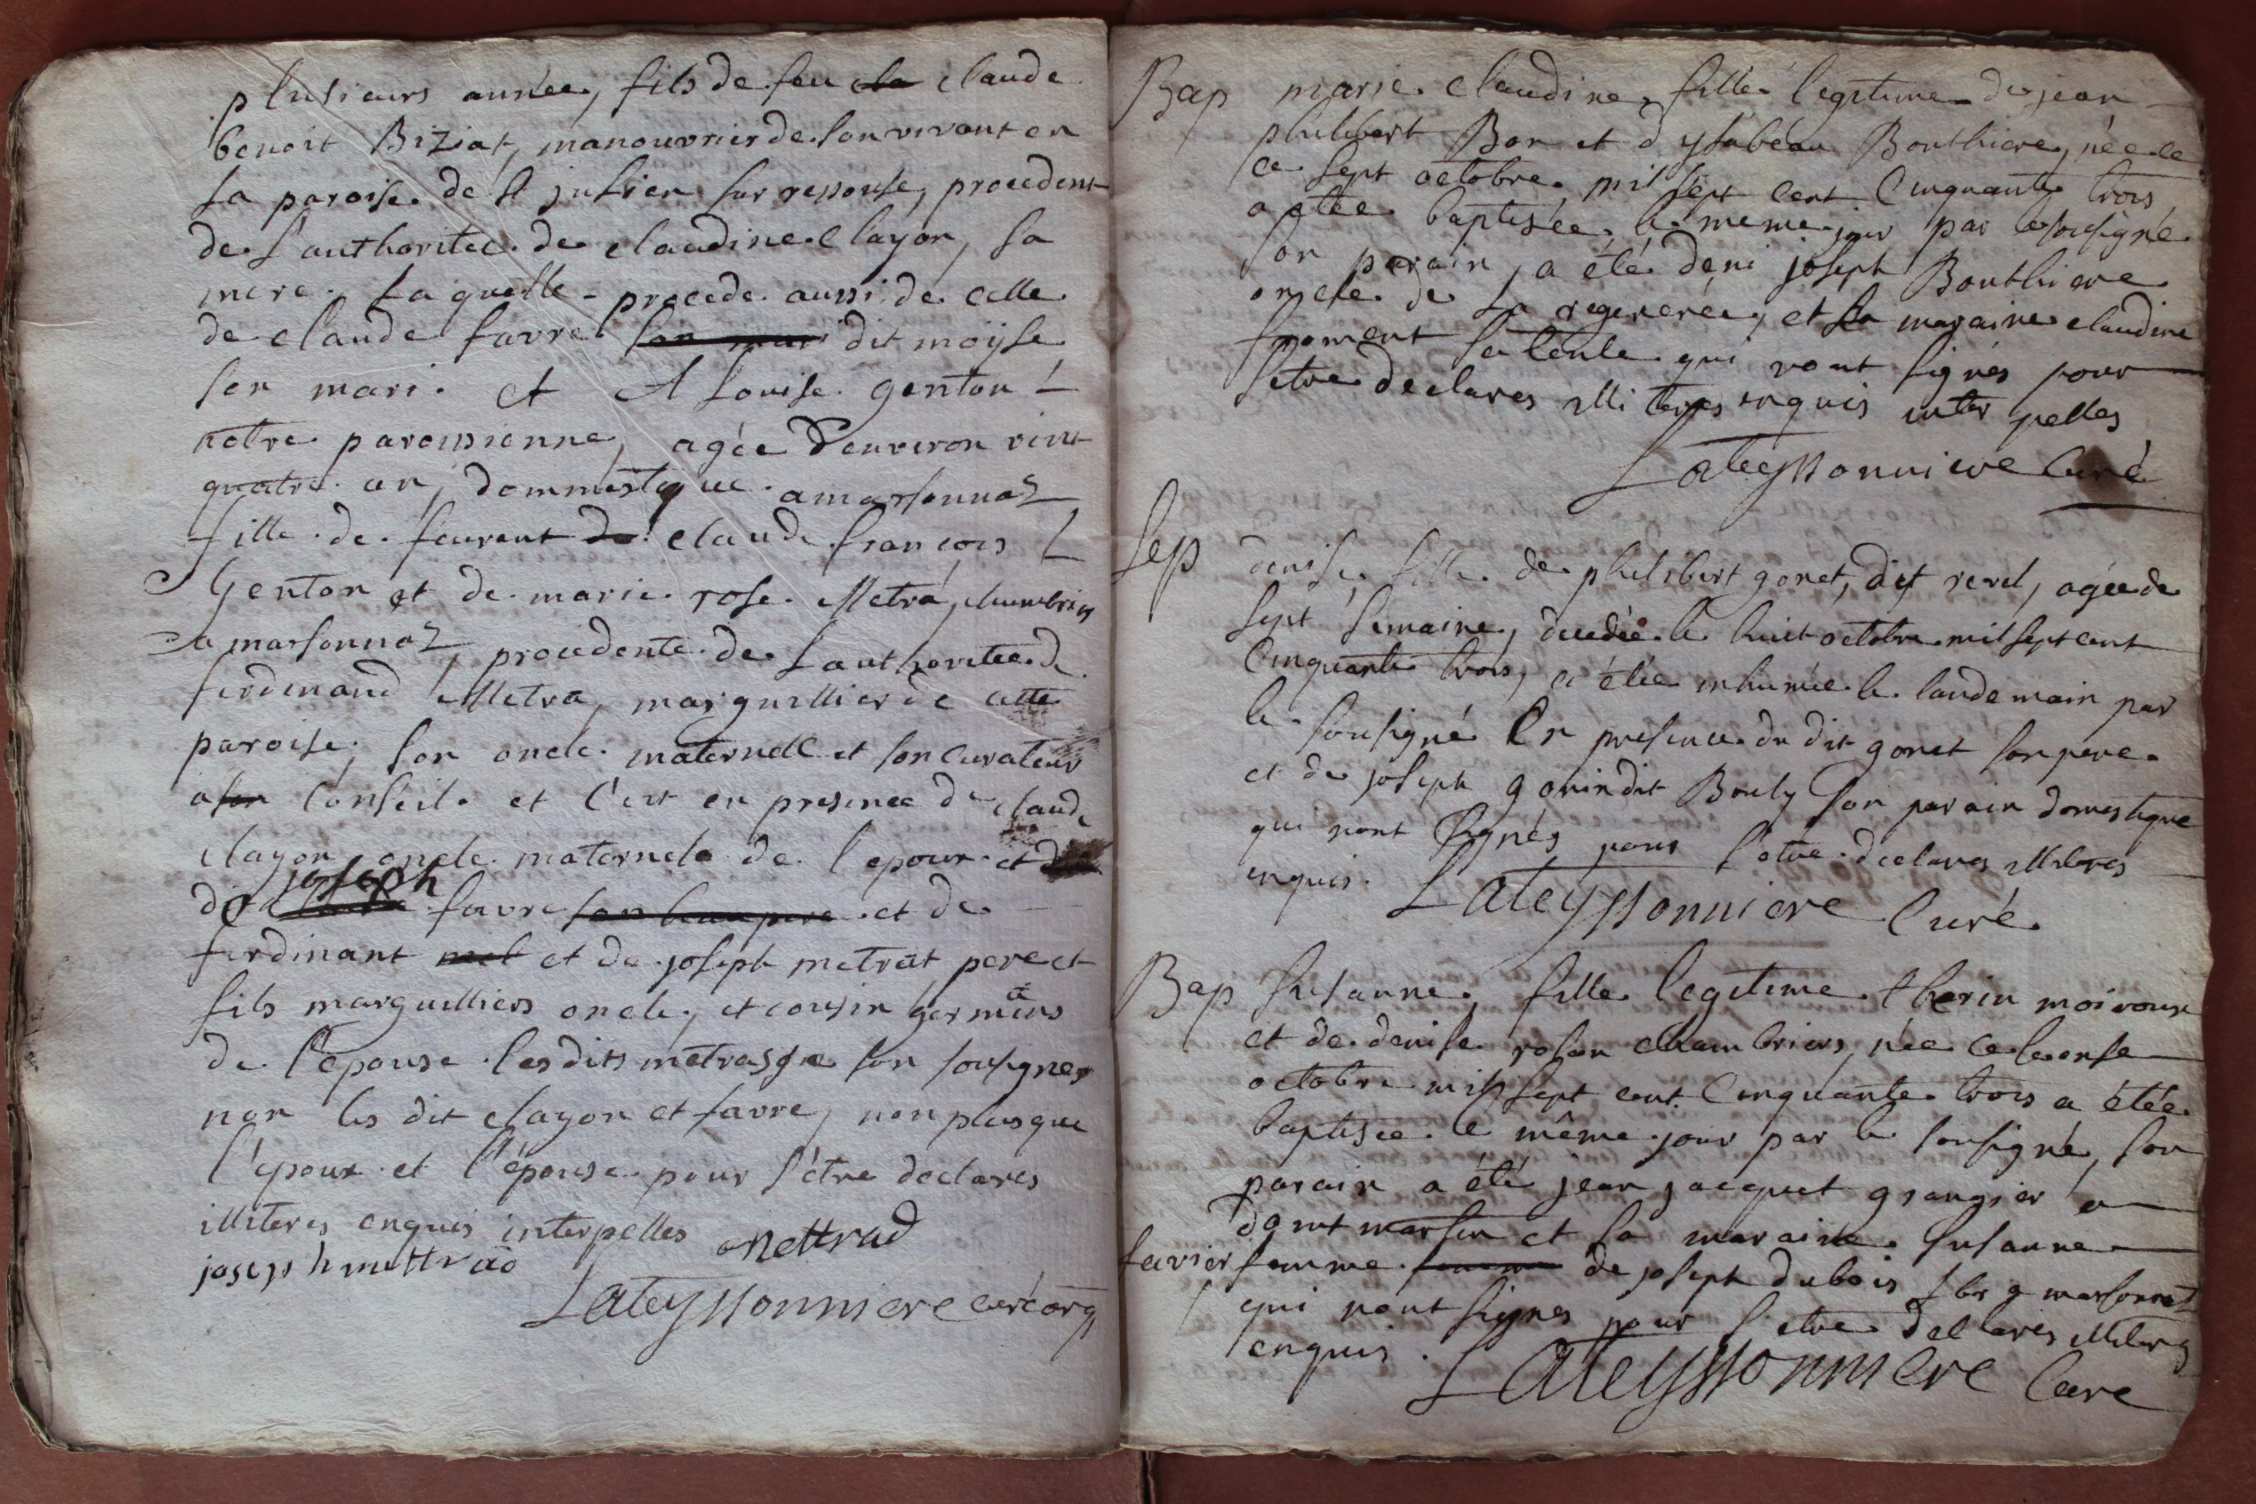 plusieurs année, fils de feu cla claude
benoit Biziat, manouvrier de son vivant en
la paroise de st julien sur ressouse, procedent
de l'authoritée de claudine clayon, sa
mere. laquelle procede aussi de celle
de claude favre son mari dit moÿse
son mari. et A louise genton
notre paroissienne, agée d'environ vint
quatre an, dommestique a marsonnas
fille de feurent de claude francois
Genton et de marie rose Metra, chambrier
a marsonnas, procedente de l'authoritée de
ferdinand Metra, marguillier de cette
paroise, son oncle maternell et son curateur
a son conseil. et c'est en presence de claude
clayon, oncle maternele de l'epoux et
de joseph favre son beau pere et de
ferdinant met et de joseph metrat pere et
fils marguilliers oncle, et cousin germains
de l'épouse. les dits metras se son sousignes
non les dit clayon et favre, non plus que
l'epoux et l'épouse pour s'être declares
illiteres enquis interpelles
joseph mettrad mettrad
Lateyssonniere curé
Bap marie claudine, fille legitime de jean
philibert Bon et d'ysabeau Bouthiere, née ce
ce sept octobre mil sept cent cinquante trois
a etée baptisée le meme jour par le sousigné
son parain, a été deni joseph Bouthiere
oncle de la regenerée, et sa maraine claudine
froment sa tente qui n'ont signés pour
s'etre declares illiteres enquis interpelles
Lateyssonniere Curé
Sep denise, fille de philibert gonet, dit revel, agée de
sept semaine, decedée le huict octobre mil sept cent
cinquante trois, a étée inhumée le landemain par
le sousigné en presence du dit gonet son pere
et de joseph gonin dit Bouly son parain domestique
qui n'ont signés pour s'etre declares illiteres
enquis. Lateyssonniere Curé
Bap susanne, fille legitime therin moiroux
et de denise roson chambriers, née ce le onse
octobre mil sept cent cinquante trois a étée
baptisée le même jour par le sousigné, son
parain a été jean jacquet grangier a
dont marsin et sa maraine susanne
favier femme femme de joseph dubois marsonnas
qui n'ont signes pour s'etre declares illiteres
enquis. Lateyssonniere Curé